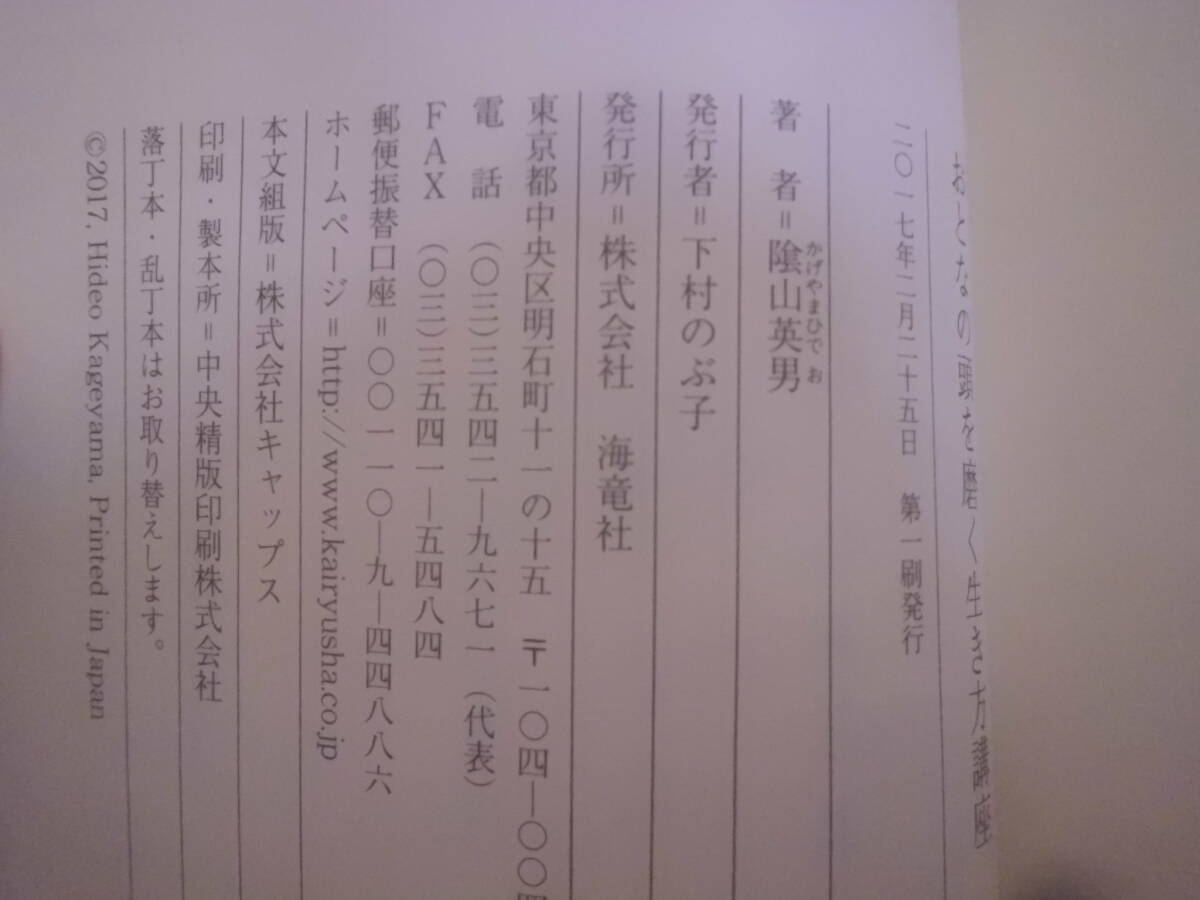 おとなの頭を磨く生き方講座
二〇一七年二月二十五日　第一刷発行
著　者＝陰山英男
かげやまひでお
発行者＝下村のぶ子
発行所＝株式会社　海竜社
東京都中央区明石町十一の十五　〒一〇四―〇〇四
電　話　（〇三）三五四二―九六七一（代表）
ＦＡＸ　（〇三）三五四一―五四八四
郵便振替口座＝〇〇一一〇―九―四四八八六
ホームページ＝http://www.kairyusha.co.jp
本文組版＝株式会社キャップス
印刷・製本所＝中央精版印刷株式会社
落丁本・乱丁本はお取り替えします。
©2017, Hideo Kageyama, Printed in Japan